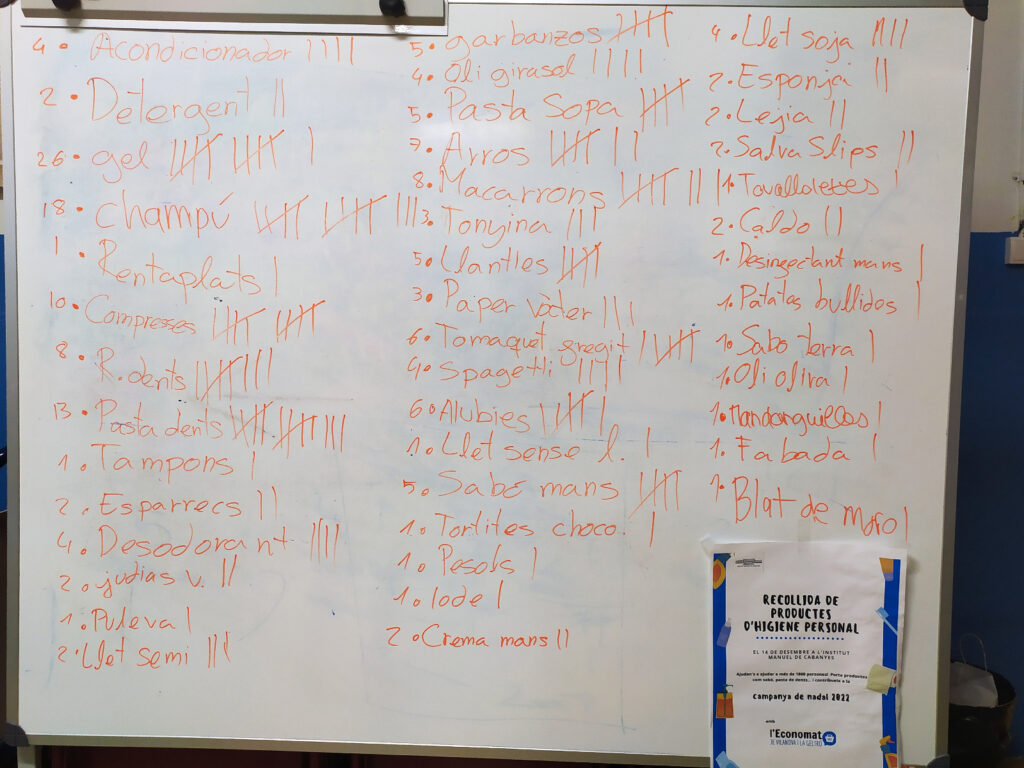 4 • Acondicionador ||||
2 • Detergent ||
26 • gel |||| |||| |
18 • champú |||| |||| |||
1 • Rentaplats |
10 • Compresses |||| ||||
8 • R.dents |||| |||
13 • Pasta dents |||| |||| |||
1 • Tampons |
2 • Esparrecs ||
4 • Desodorant ||||
2 • judias v. ||
1 • Puleva |
2 • Llet semi |||
5 • garbanzos ||||
4 • Oli girasol ||||
5 • Pasta Sopa ||||
7 • Arros |||| ||
8 • Macarrons |||| |||
3 • Tonyina |||
5 • Llanties ||||
3 • Paper vàter |||
6 • Tomaquet fregit | ||||
4 • Spagetti ||||
6 • Alubies |||| |
1 • Llet sense l. |
5 • Sabó mans ||||
1 • Tortites choco. |
1 • Pesols |
1 • Iode |
2 • Crema mans ||
4 • Llet soja ||||
2 • Esponja ||
2 • Lejia ||
2 • Salva Slips ||
1 • Tovalloletes |
2 • Caldo ||
1 • Desinfectant mans |
1 • Patates bullides |
1 • Sabo terra |
1 • Oli oliva |
1 • Mandonguilles |
1 • Fabada |
1 • Blat de moro |
RECOLLIDA DE
PRODUCTES
D'HIGIENE PERSONAL
EL 14 DE DESEMBRE A L'INSTITUT
MANUEL DE CABANYES
Ajudan's a ajudar a més de 1800 persones! Porta productes
com sabó, pasta de dents... i contribueix a la
campanya de nadal 2022
amb
l'Economat
DE VILANOVA I LA GELTRÚ